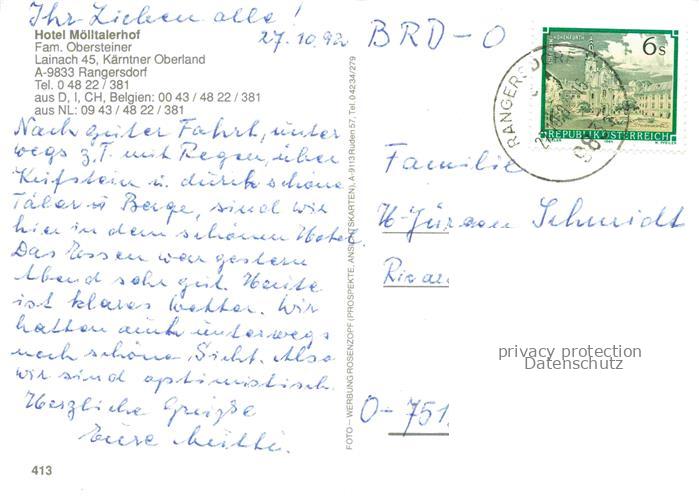 Ihr Lieben alle!
27.10.92
Hotel Mölltalerhof
Fam. Obersteiner
Lainach 45, Kärntner Oberland
A-9833 Rangersdorf
Tel. 0 48 22 / 381
aus D, I, CH, Belgien: 00 43 / 48 22 / 381
aus NL: 09 43 / 48 22 / 381
Nach guter Fahrt, unter
wegs z.T. mit Regen, über
Kufstein u. durch schöne
Täler u Berge, sind wir
hier in dem schönen Hotel.
Das Essen war gestern
Abend sehr gut. Heute
ist klares Wetter. Wir
hatten auch unterwegs
noch schöne Sicht. Also
wir sind optimistisch.
Herzliche Grüße
Eure Mutti.
413
FOTO – WERBUNG ROSENZOPF (PROSPEKTE, ANSICHTSKARTEN), A-9113 Ruden 57, Tel. 0 42 34 / 279
BRD-O
6s
REPUBLIK ÖSTERREICH
RANGERSDORF
98
Familie
H-Jürgen Schmidt
O-751
privacy protection
Datenschutz